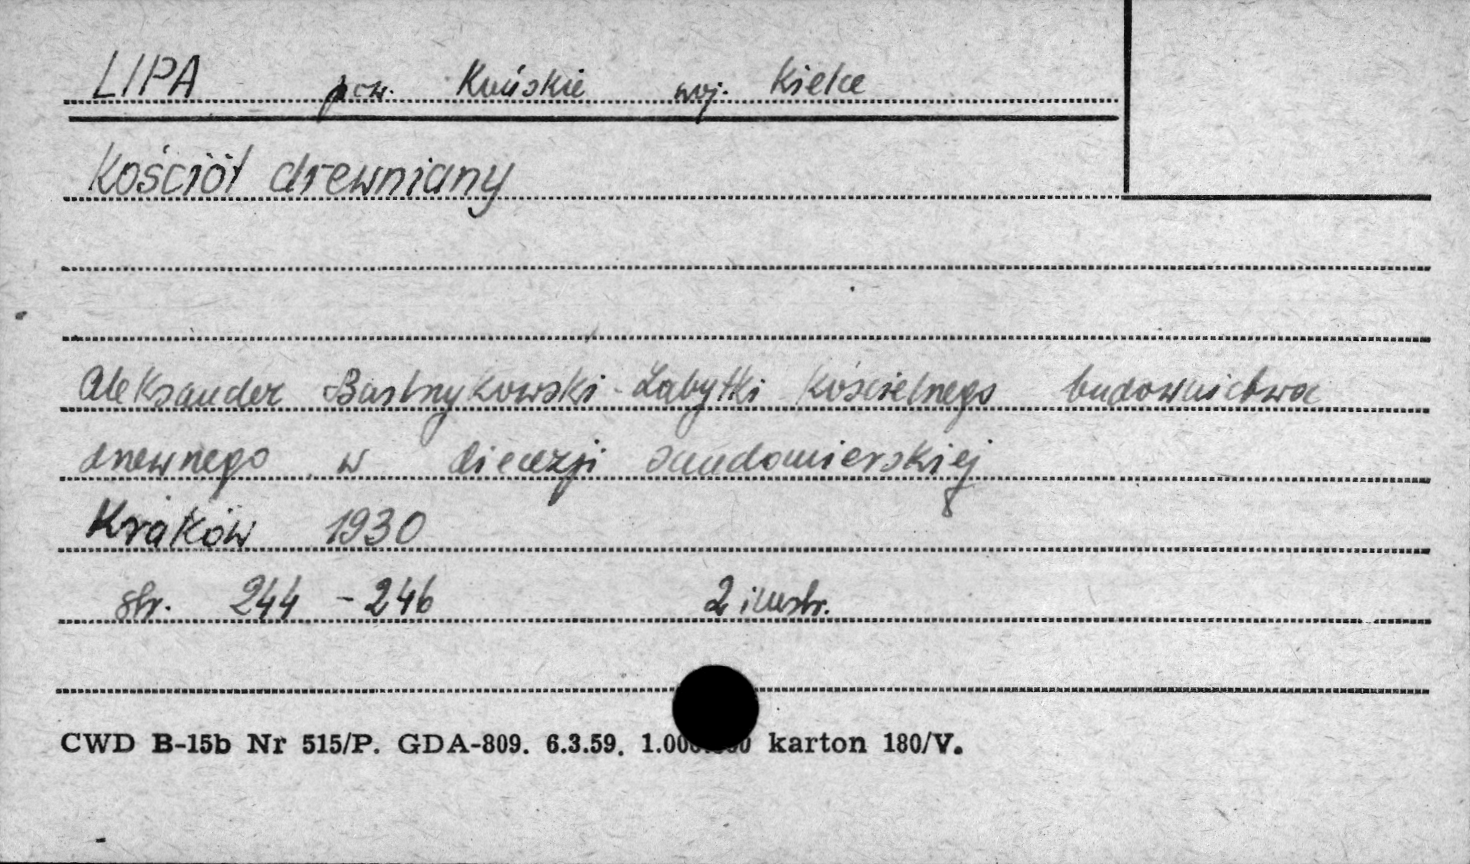 LIPA pow. Końskie woj. Kielce
Kościół drewniany
Aleksander Bastrzykowski - Zabytki kościelnego budownictwa
drewnego w diecezji sandomierskiej
Kraków 1930
str. 244 - 246 2 ilustr.
CWD B-15b Nr 515/P. GDA-809. 6.3.59. karton 180/V.